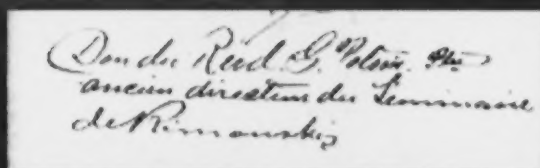 Don du Rév'd. G. Potvin. Ptre
ancien directeur du Séminaire
de Rimouski